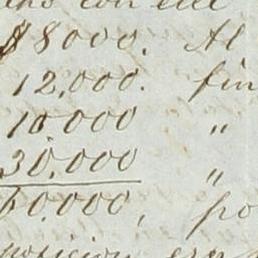 con
$8000. Al
12,000. fin
10.000 "
30,000 "
60.000, po